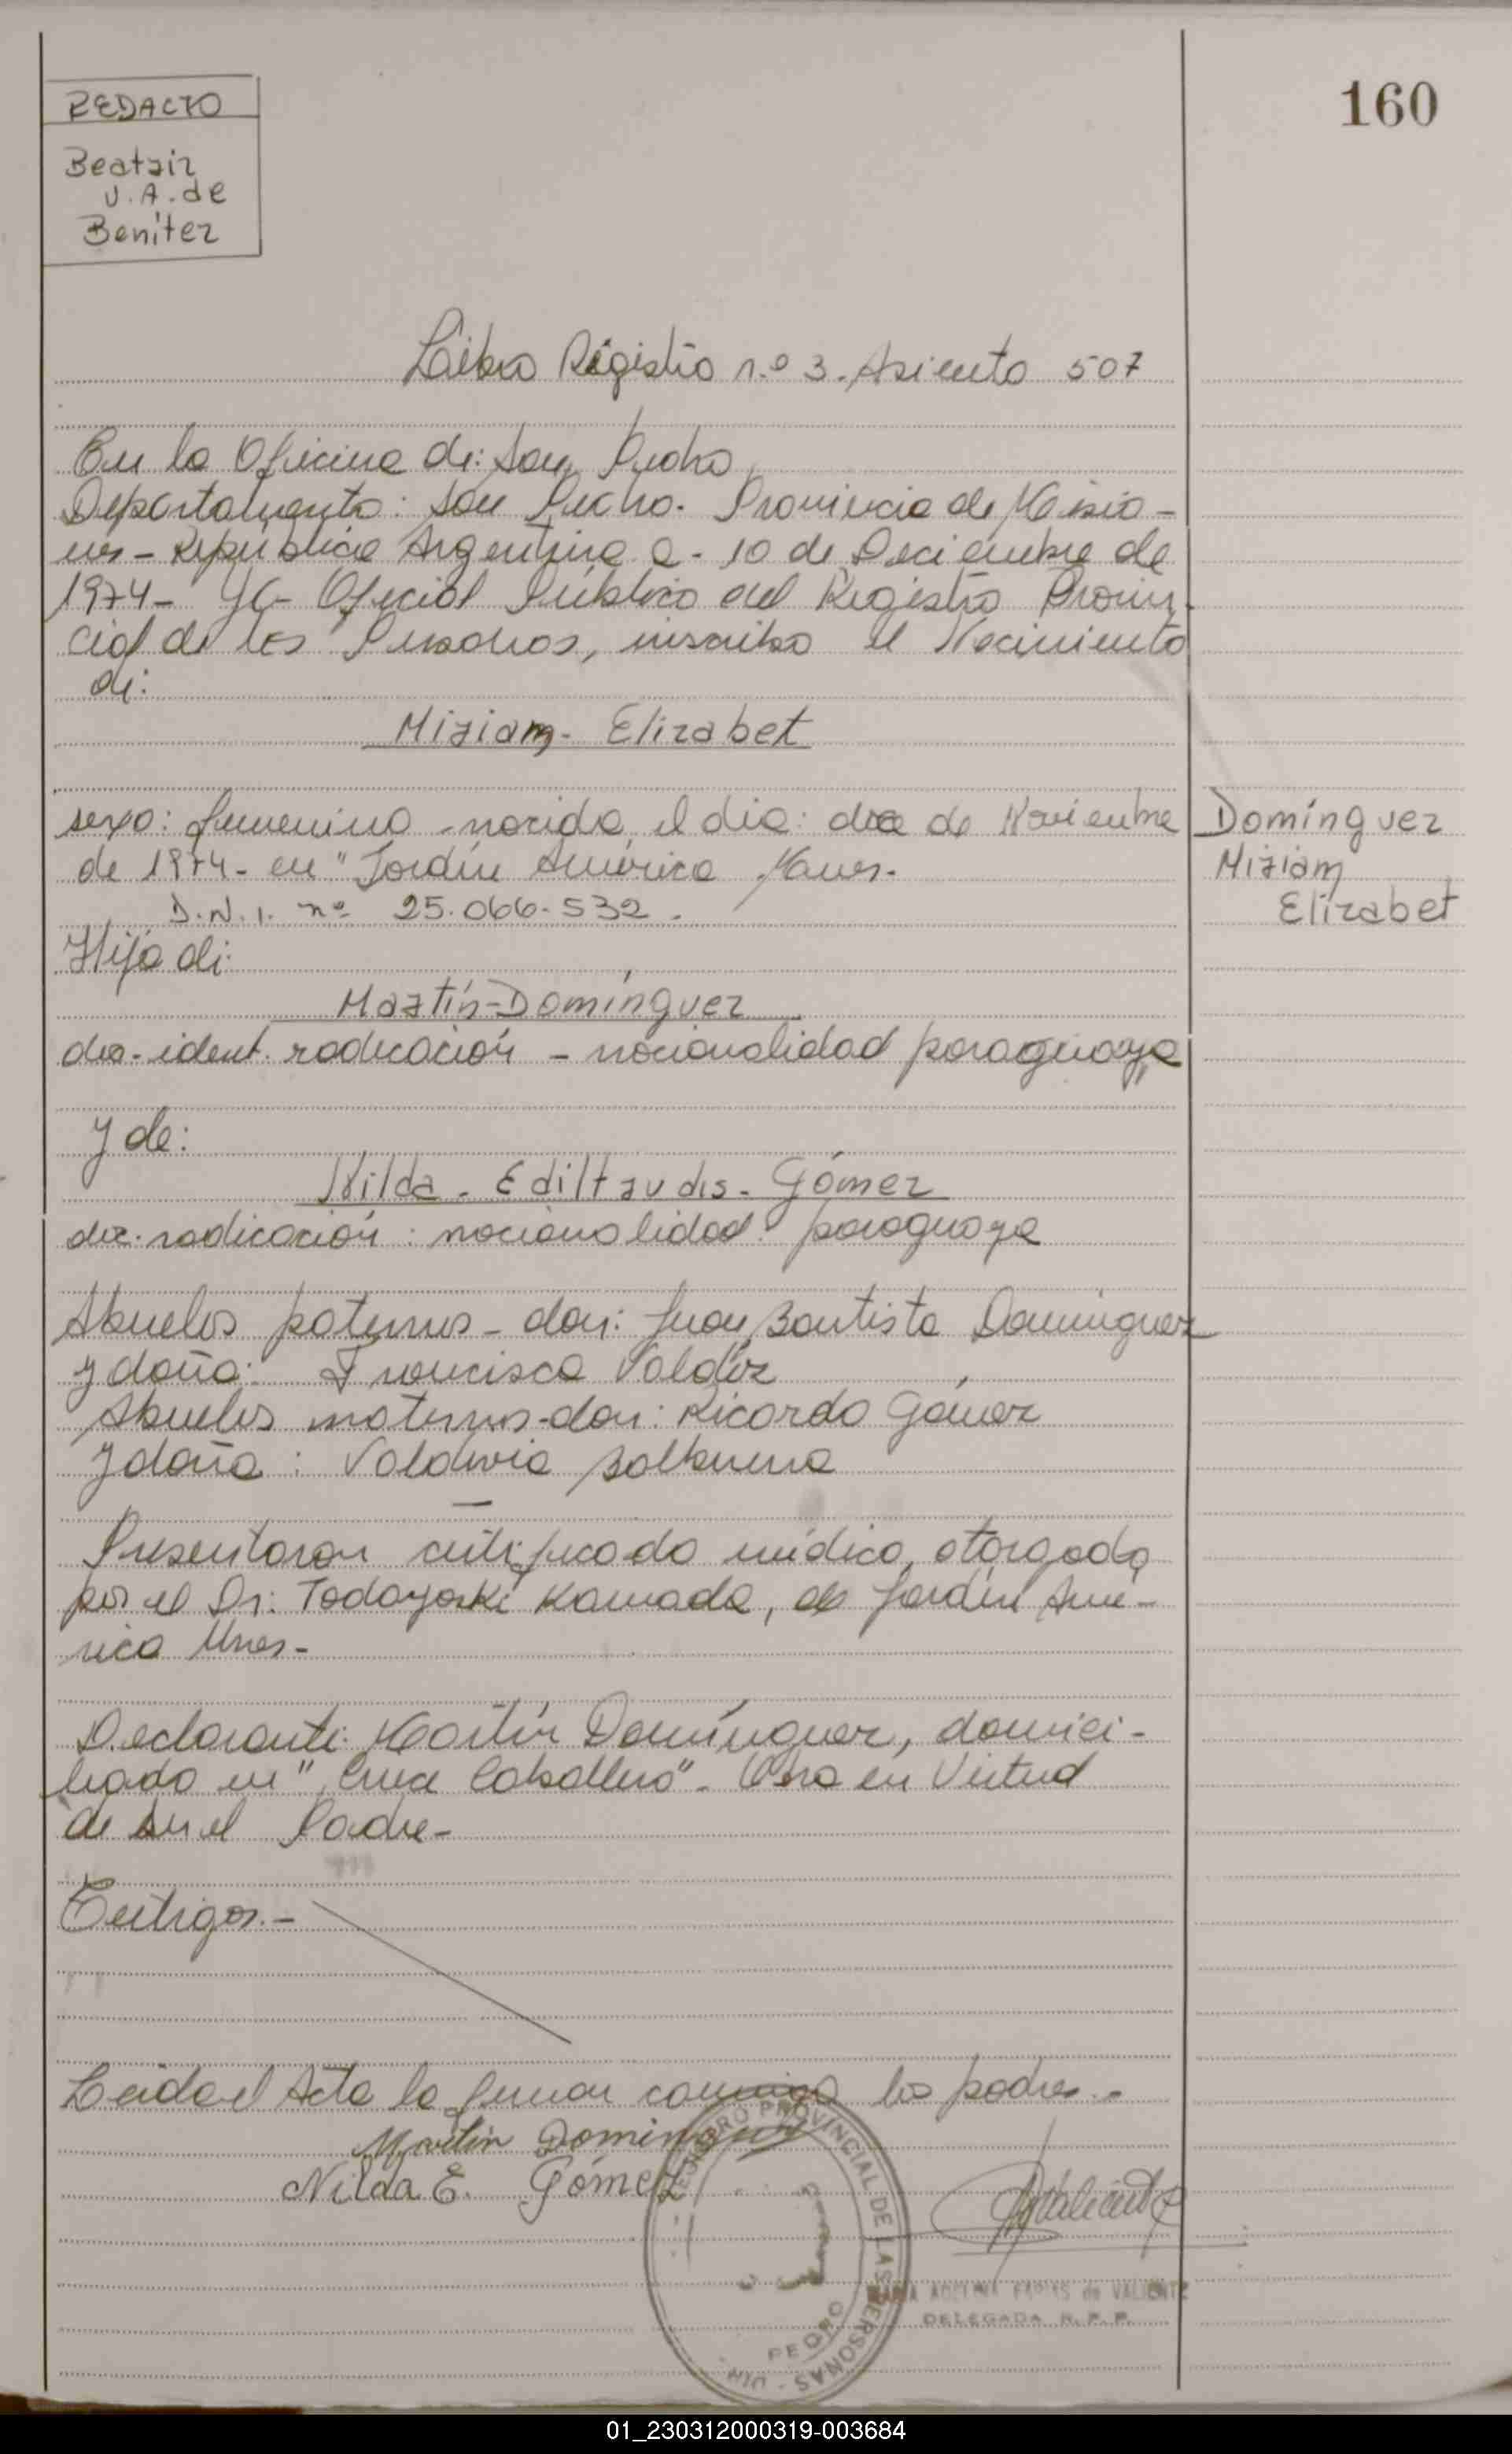 160
REDACTO
Beatriz
V.A. de
Benítez
Libro Registro n.º 3. Asiento 507
En la Oficina de: San Pedro
Departamento: San Pedro. Provincia de Misio-
nes - República Argentina a - 10 de Deciembre de
1974 - Yo - Oficial Público del Registro Provin-
cial de las Personas, inscribo el Nacimiento
de:
Miriam - Elizabet
sexo: femenino - nacida el dia: doce de Noviembre
de 1974 - en "Jardín América Mnes.
D.N.I. nº 25.066.532.
Domínguez
Miriam
Elizabet
Hija de:
Martín - Domínguez
doc. ident. radicación - nacionalidad paraguaya
y de:
Nilda - Ediltrudis - Gómez
doc. radicación: nacionalidad: paraguaya
Abuelos paternos - don: Juan Bautista Domínguez
y doña: Francisca Valdéz
Abuelos maternos - don: Ricardo Gómez
y doña: Valdivia Balbuena
Presentaron certificado médico, otorgado
por el Dr: Kamada, de Jardín Amé-
rica Mnes -
Declarante: Martín Domínguez, domici-
liado en "Cruce Caballero". Obra en Virtud
de ser el Padre -
Testigos. -
Leida el Acta la firman conmigo los padres. -
Martin Dominguez
Nilda E. Gómez
REGISTRO PROVINCIAL DE LAS PERSONAS
PEDRO
de VALIENTE
DELEGADA R.P.P.
01_230312000319-003684